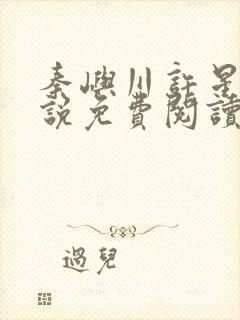 秦嶼川許星
說免費閱讀
過兒